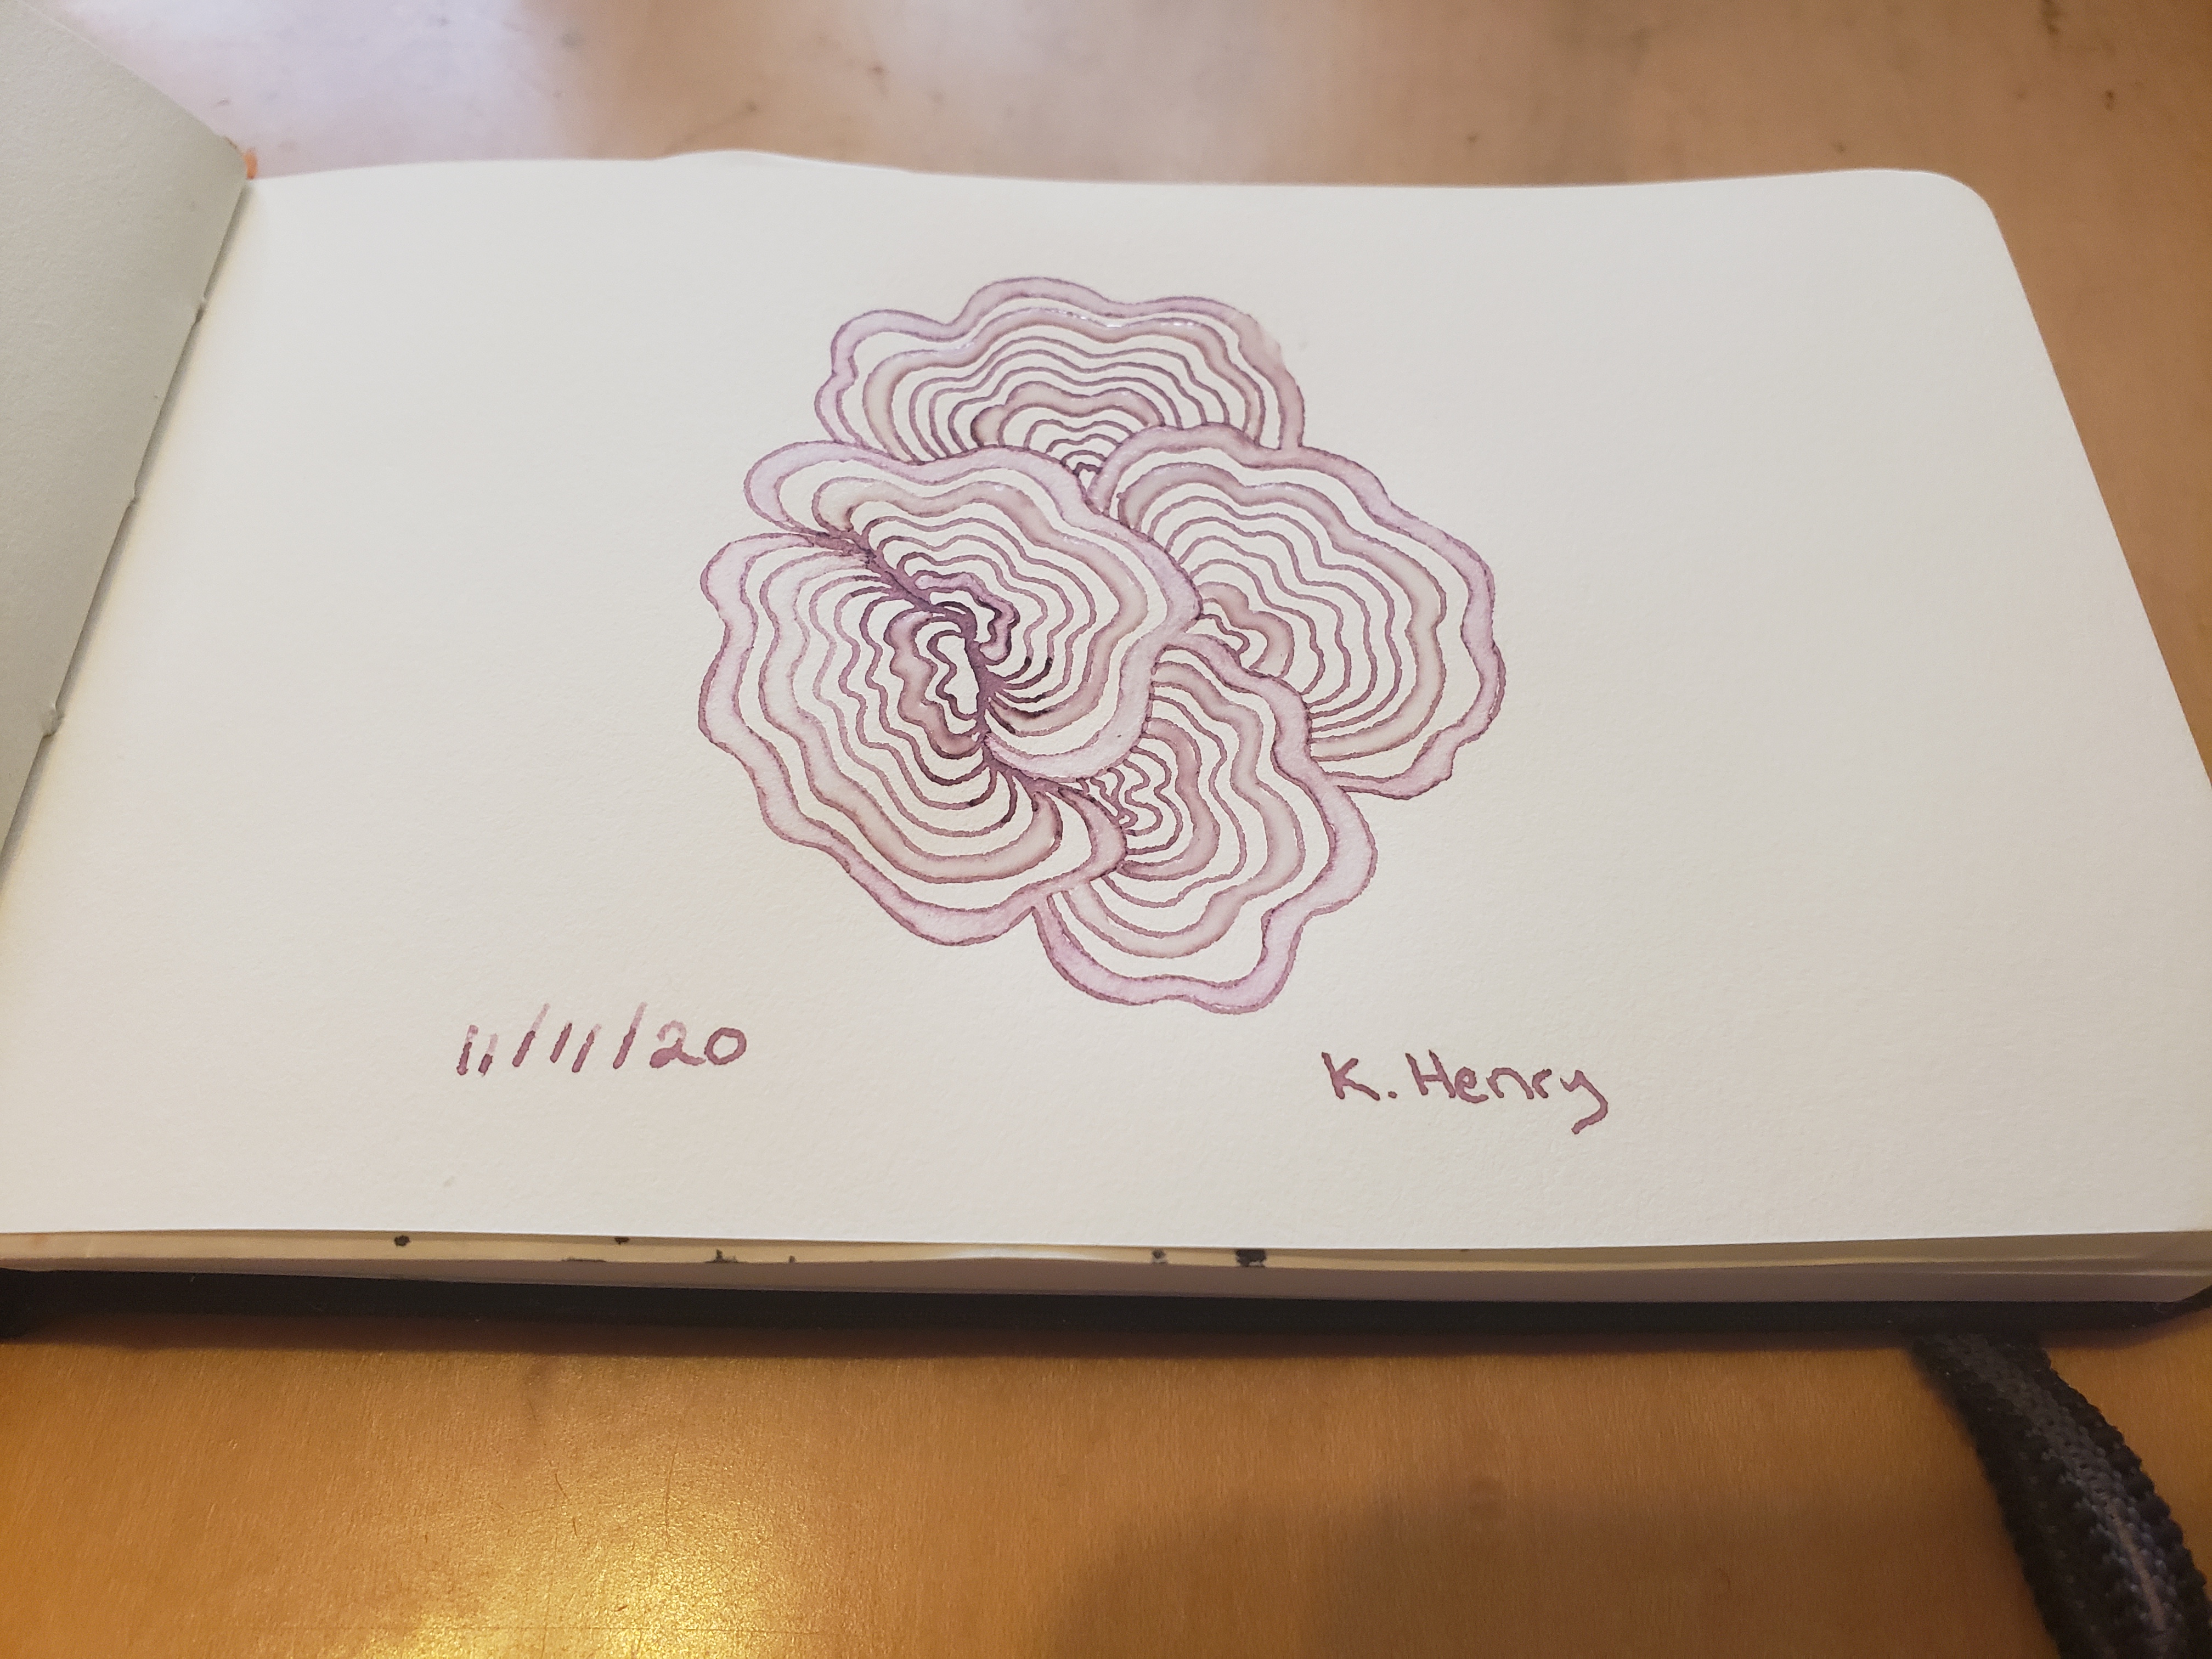 11/11/20
K. Henry